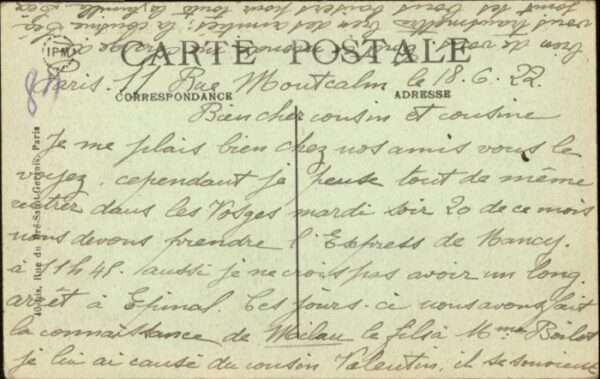 CARTE POSTALE
CORRESPONDANCE
ADRESSE
IPM
84
Paris. 11 Rue Montcalm le 18.6.22.
Bien cher cousin et cousine
Je me plais bien chez nos amis vous le
voyez, cependant je pense tout de même
rentrer dans les Vosges mardi soir 20 de ce mois
nous devons prendre l'Express de Nancy.
à 11h45. aussi je ne crois pas avoir un long
arrêt à Epinal. Ces jours-ci nous avons fait
la connaissance de le fils à Mme
je lui ai causé du cousin Valentin, il se souvient
bien de
vous transmettre bien des amitiés; la cousine
font les bons baisers pour toute la famille.
Rue du Pré-Saint-Gervais, Paris